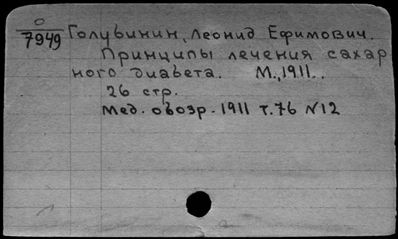 О
7949 Голубинин, Леонид Ефимович.
Принципы лечения сахар
ного диабета. М., 1911.
26 стр.
Мед. обозр. 1911 т. 76 N12